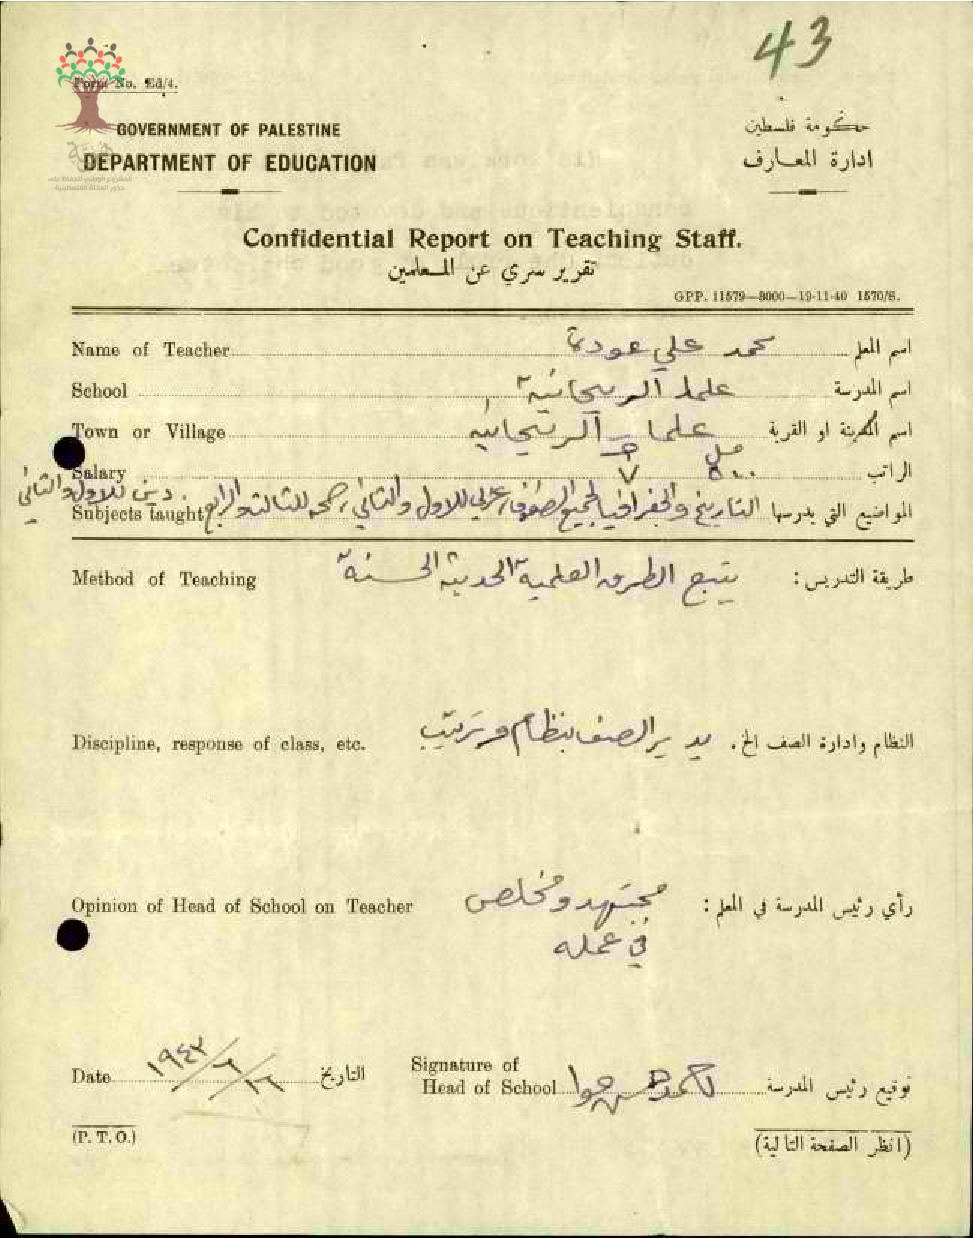 43
Form No. Ed/4.
GOVERNMENT OF PALESTINE
حكومة فلسطين
DEPARTMENT OF EDUCATION
ادارة المعارف
Confidential Report on Teaching Staff.
تقرير سري عن المعلمين
GPP. 11579—3000—19-11-40 1570/S.
Name of Teacher محمد علي عودة اسم المعلم
School علما الريحانية اسم المدرسة
Town or Village علما الريحانية اسم المدينة او القرية
Salary ج ٧ مل ٥٠٠ الراتب
Subjects taught التاريخ والجغرافيا لجميع الصفوف، عربي للاول والثاني، صحه للثالث والرابع. دين للاول والثاني المواضيع التي يدرسها
Method of Teaching يتبع الطرق العلمية الحديثة الحسنة طريقة التدريس :
Discipline, response of class, etc. يدير الصف بنظام وترتيب النظام وادارة الصف الخ.
Opinion of Head of School on Teacher مجتهد ومخلص رأي رئيس المدرسة في المعلم :
في عمله
Date ١٦/٦/١٩٤٣ التاريخ
Signature of
Head of School توقيع رئيس المدرسة
(P. T. O.)
(انظر الصفحة التالية)